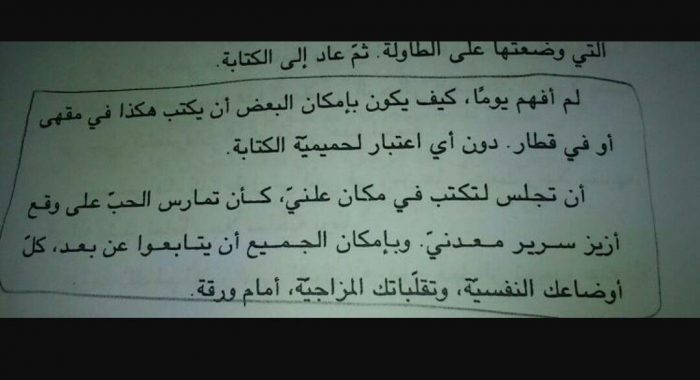 التي وضعتها على الطاولة. ثمّ عاد إلى الكتابة.
لم أفهم يومًا، كيف يكون بإمكان البعض أن يكتب هكذا في مقهى
أو في قطار. دون أي اعتبار لحميميّة الكتابة.
أن تجلس لتكتب في مكان علنيّ، كأن تمارس الحبّ على وقع
أزيز سرير معدنيّ. وبإمكان الجميع أن يتابعوا عن بعد، كلّ
أوضاعك النفسيّة، وتقلّباتك المزاجيّة، أمام ورقة.